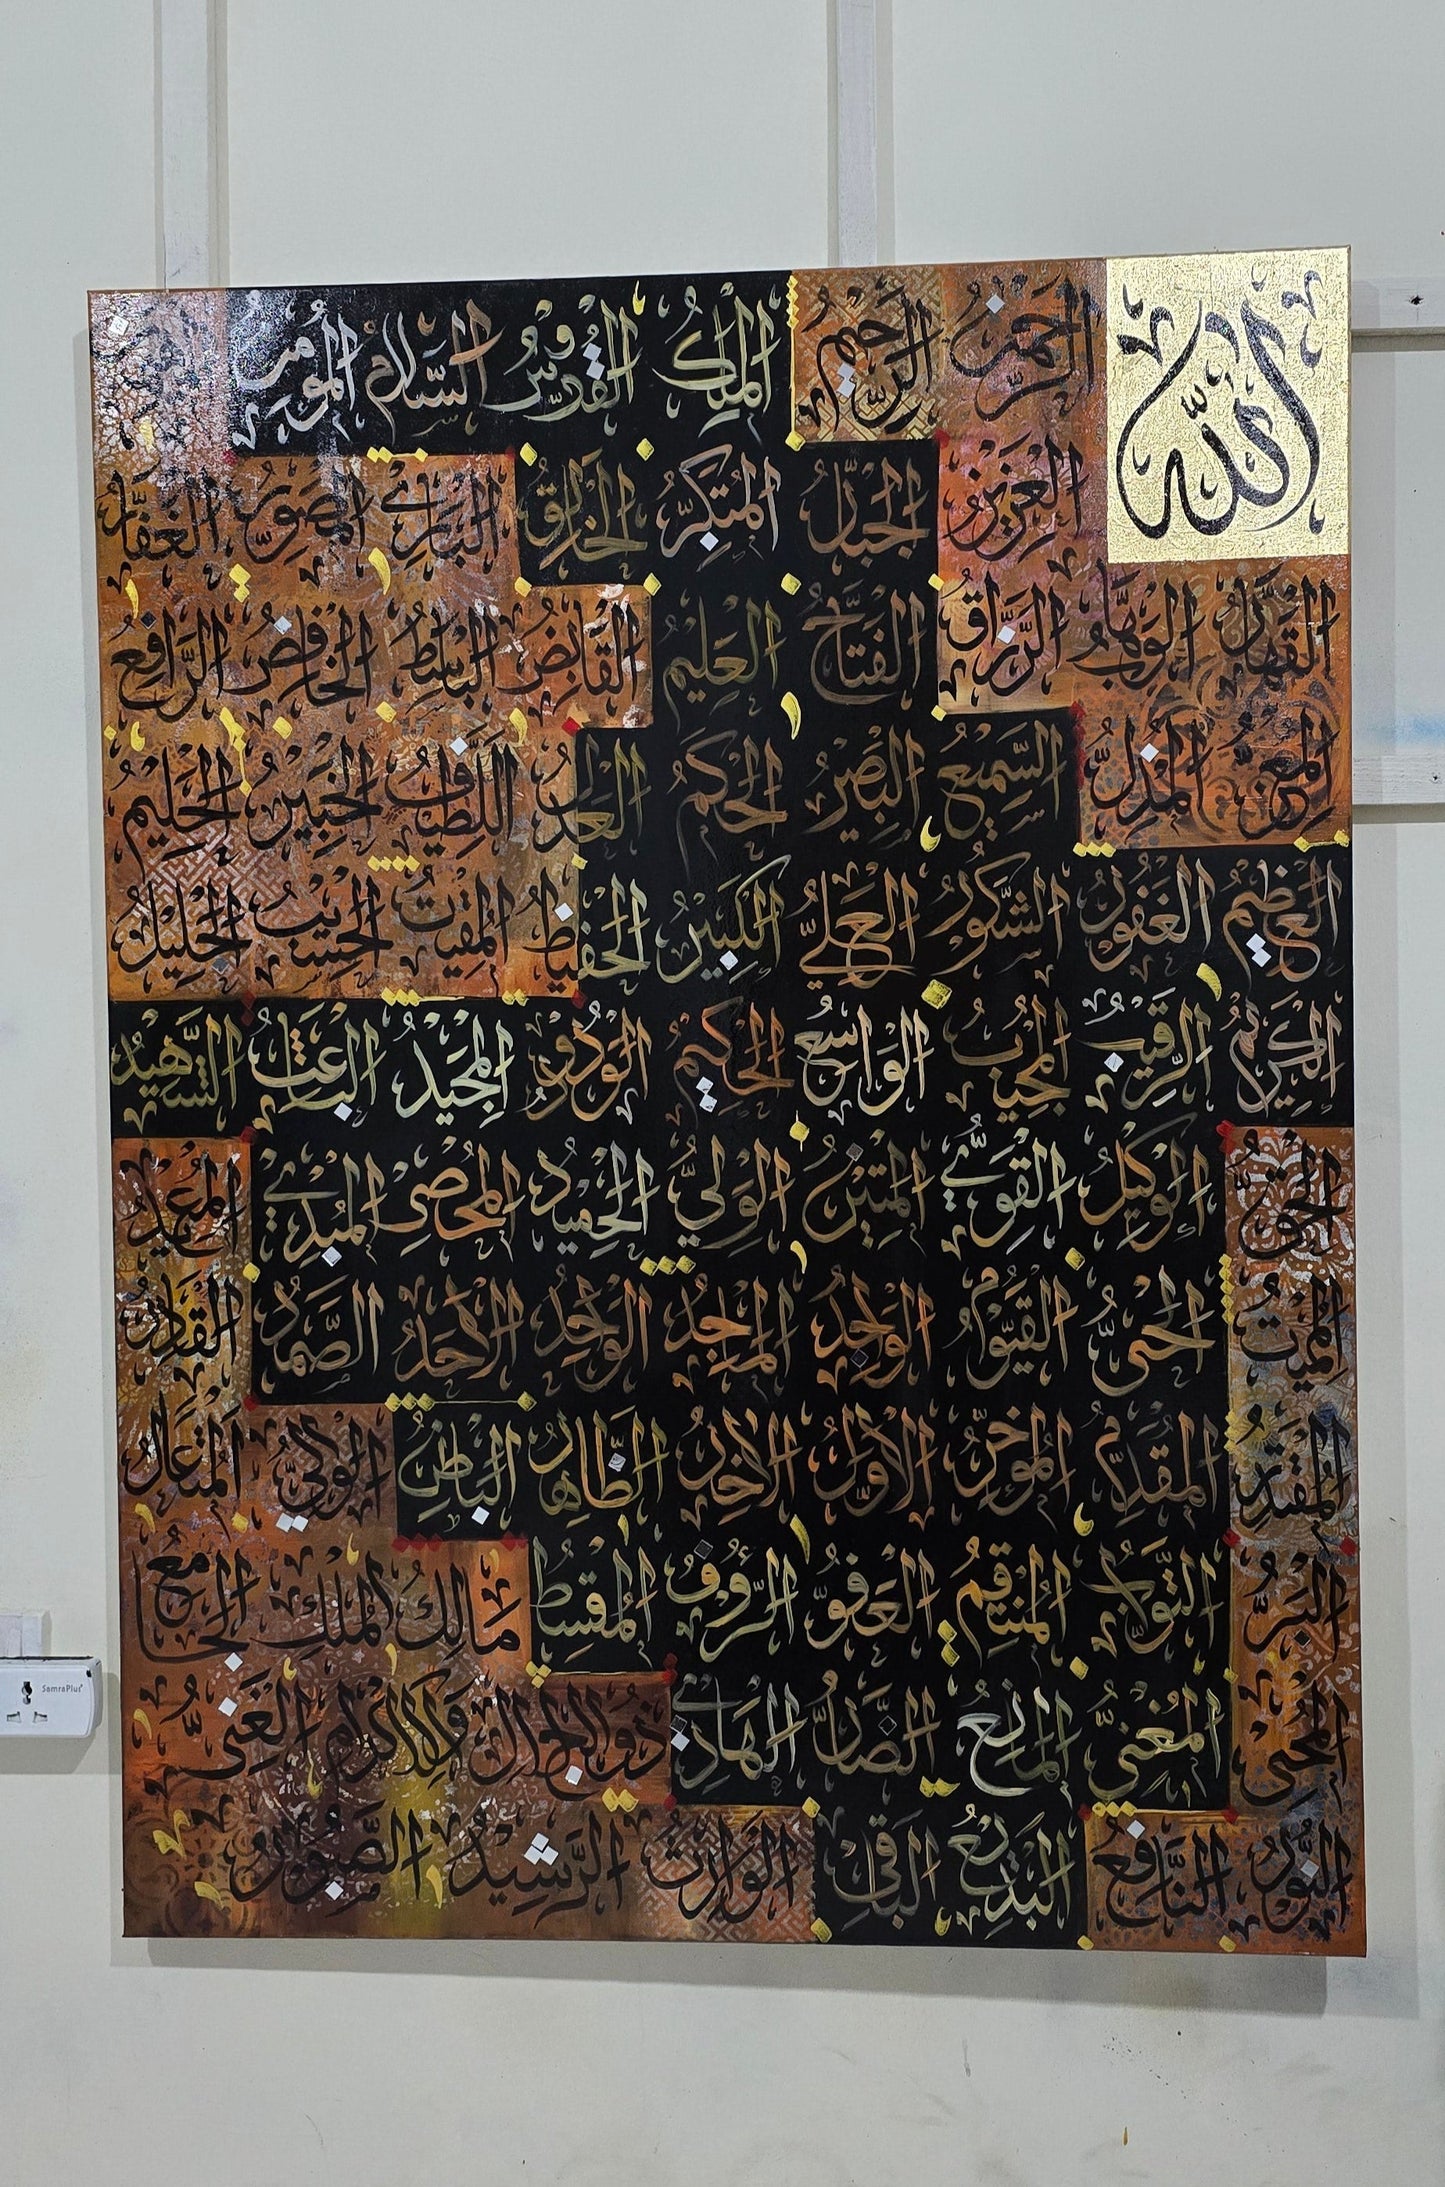 الله الرَّحْمٰنُ الرَّحِيْمُ الْمَلِكُ الْقُدُّوْسُ السَّلَامُ الْمُؤْمِنُ
الْعَزِيْزُ الْجَبَّارُ الْمُتَكَبِّرُ الْخَالِقُ الْبَارِئُ الْمُصَوِّرُ الْغَفَّارُ
الْقَهَّارُ الْوَهَّابُ الرَّزَّاقُ الْفَتَّاحُ الْعَلِيْمُ الْقَابِضُ الْبَاسِطُ الْخَافِضُ الرَّافِعُ
الْمُعِزُّ الْمُذِلُّ السَّمِيْعُ الْبَصِيْرُ الْحَكَمُ الْعَدْلُ اللَّطِيْفُ الْخَبِيْرُ الْحَلِيْمُ
الْعَظِيْمُ الْغَفُوْرُ الشَّكُوْرُ الْعَلِيُّ الْكَبِيْرُ الْحَفِيْظُ الْمُقِيْتُ الْحَسِيْبُ الْجَلِيْلُ
الْكَرِيْمُ الرَّقِيْبُ الْمُجِيْبُ الْوَاسِعُ الْحَكِيْمُ الْوَدُوْدُ الْمَجِيْدُ الْبَاعِثُ الشَّهِيْدُ
الْحَقُّ الْوَكِيْلُ الْقَوِيُّ الْمَتِيْنُ الْوَلِيُّ الْحَمِيْدُ الْمُحْصِي الْمُبْدِئُ الْمُعِيْدُ
الْمُمِيْتُ الْحَيُّ الْقَيُّوْمُ الْوَاجِدُ الْمَاجِدُ الْوَاحِدُ الْاَحَدُ الصَّمَدُ الْقَادِرُ
الْمُقْتَدِرُ الْمُقَدِّمُ الْمُؤَخِّرُ الْاَوَّلُ الْاٰخِرُ الظَّاهِرُ الْبَاطِنُ الْوَالِيُ الْمُتَعَالُ
الْبَرُّ التَّوَّابُ الْمُنْتَقِمُ الْعَفُوُّ الرَّءُوْفُ الْمُقْسِطُ مَالِكُ الْمُلْكِ الْجَامِعُ
الْمُحْيِ الْمُغْنِيُّ الْمَانِعُ الضَّارُّ الْهَادِيُ ذُوالْجَلَالِ وَالْاِكْرَامِ الْغَنِيُّ
النُّوْرُ النَّافِعُ الْبَدِيْعُ الْبَاقِيُ الْوَارِثُ الرَّشِيْدُ الصَّبُوْرُ
SamraPlus